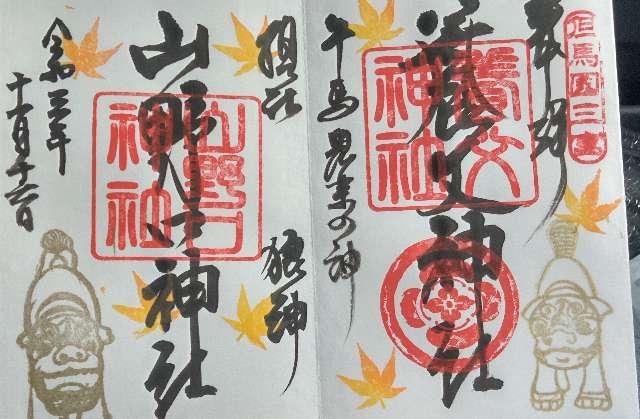 奉拝
但馬国三宮
養父神社
養父神社
牛馬農業の神
摂社
狼神
山野口神社
山野口神社
令和三年
十一月十六日